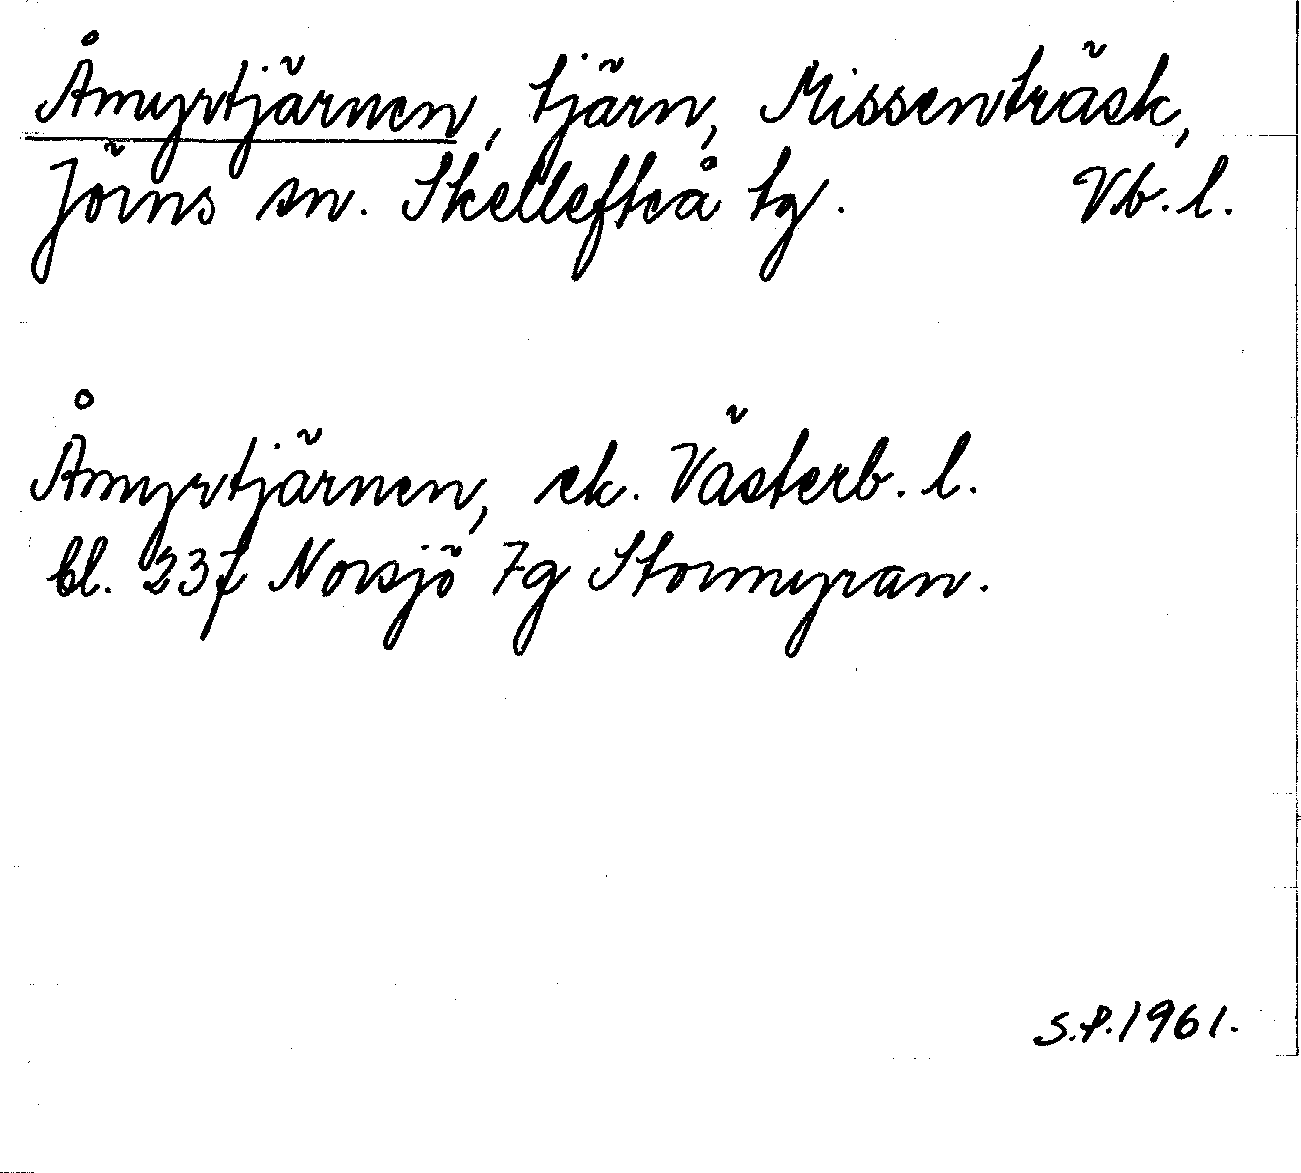 Åmyrtjärnen, tjärn, Missenträsk,
Jörns sn. Skellefteå tg. Vb. l.
Åmyrtjärnen, ek. Västerb. l.
bl. 237 Norsjö 7g Stormyran.
S.P. 1961.